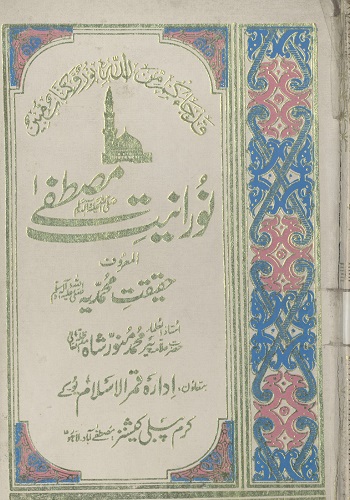 قد جاءکم من اللہ نور و کتاب مبین
نورانیت مصطفےٰ
صلی اللہ علیہ وسلم
المعروف
حقیقت محمدیہ
صلی اللہ علیہ وسلم
استاذ العلماء
حضرت علامہ پیر محمد منور شاہ
بتعاون: ادارہ قمر الاسلام
کرم پبلی کیشنز، مصطفےٰ آباد لاہور